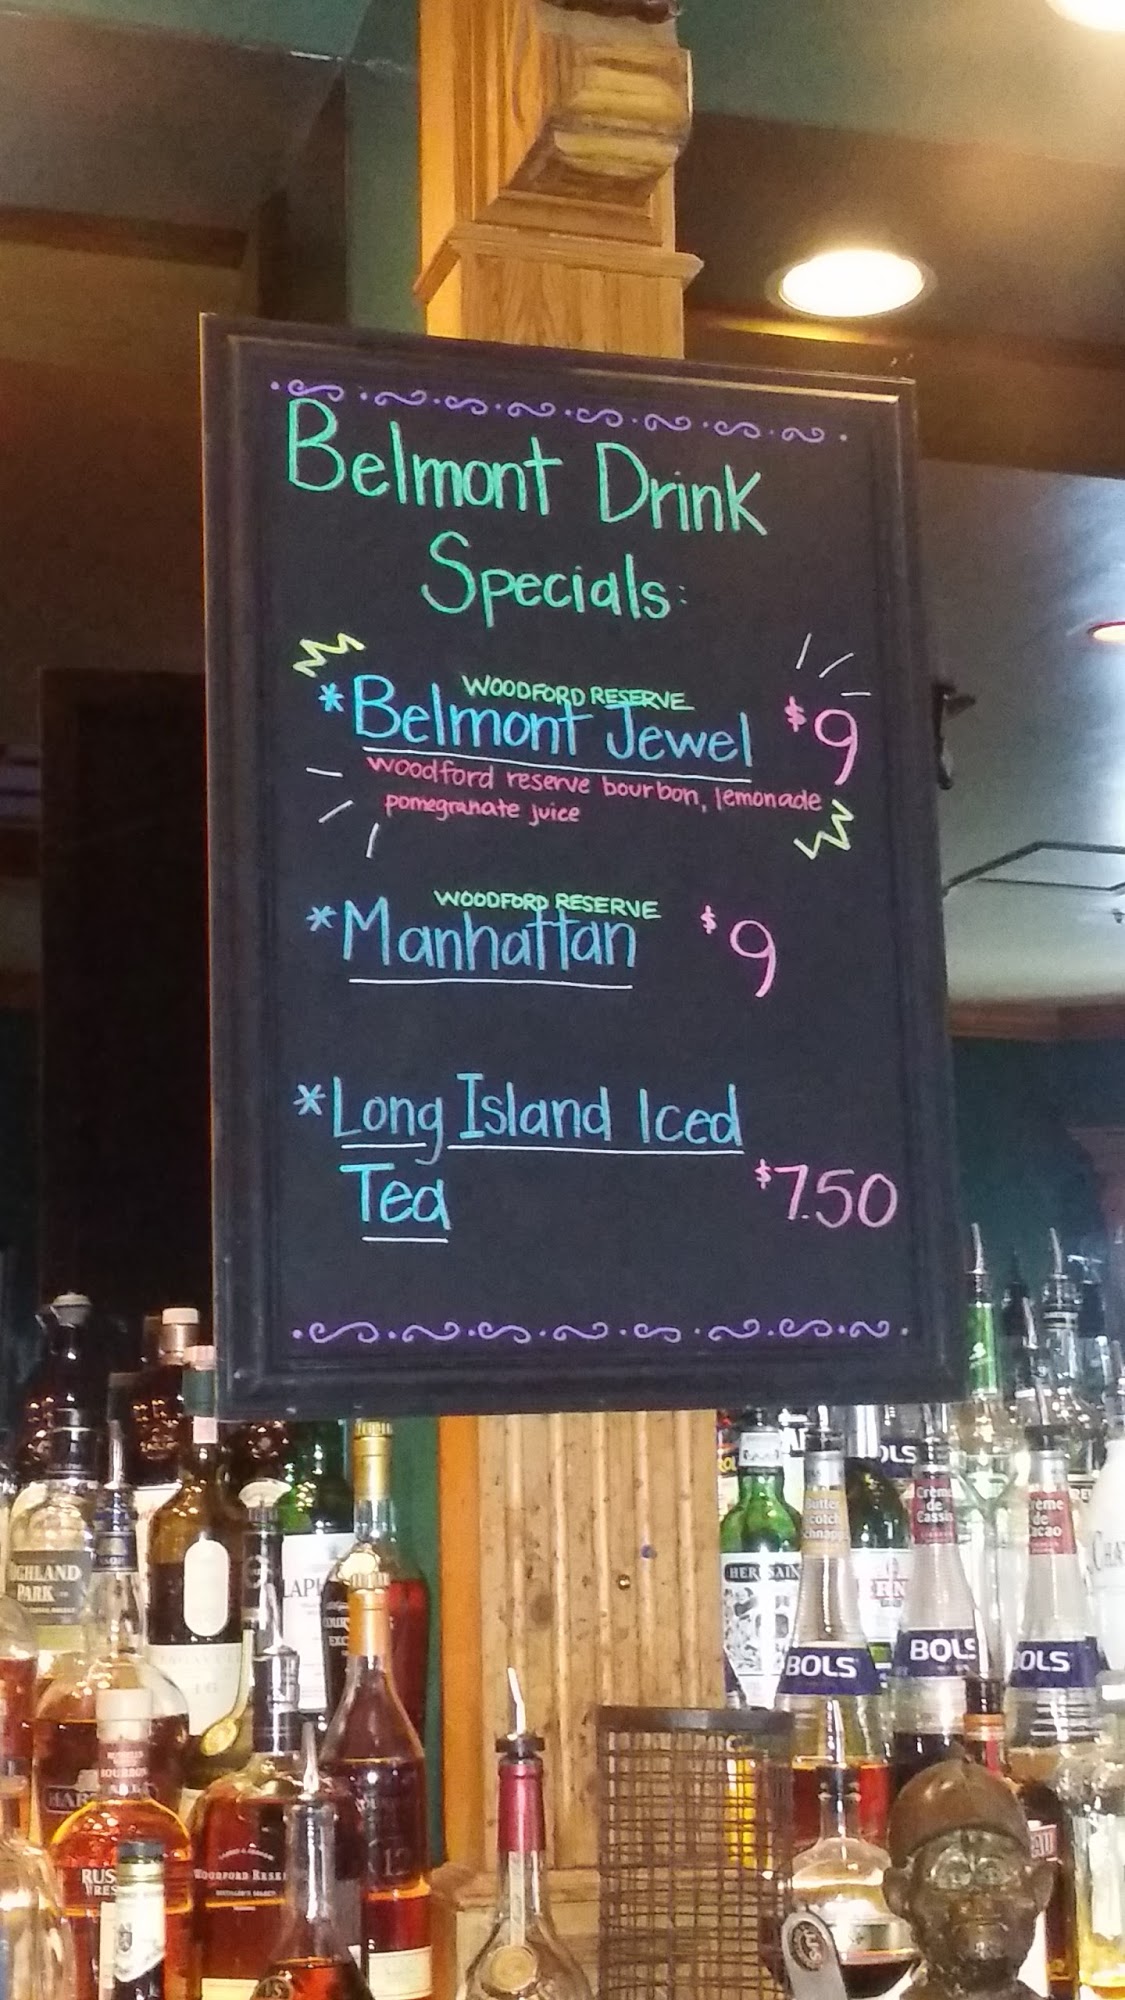 Belmont Drink
Specials:
WOODFORD RESERVE
*Belmont Jewel $9
woodford reserve bourbon, lemonade
pomegranate juice
WOODFORD RESERVE
*Manhattan $9
*Long Island Iced
Tea $7.50
BOLS
Creme
de
Cassis
HIGHLAND
PARK
BOLS
BOLS
BOLS
WOODFORD RESERVE
12